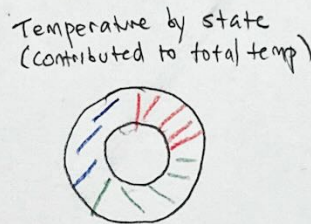 Temperature by state
(contributed to total temp)